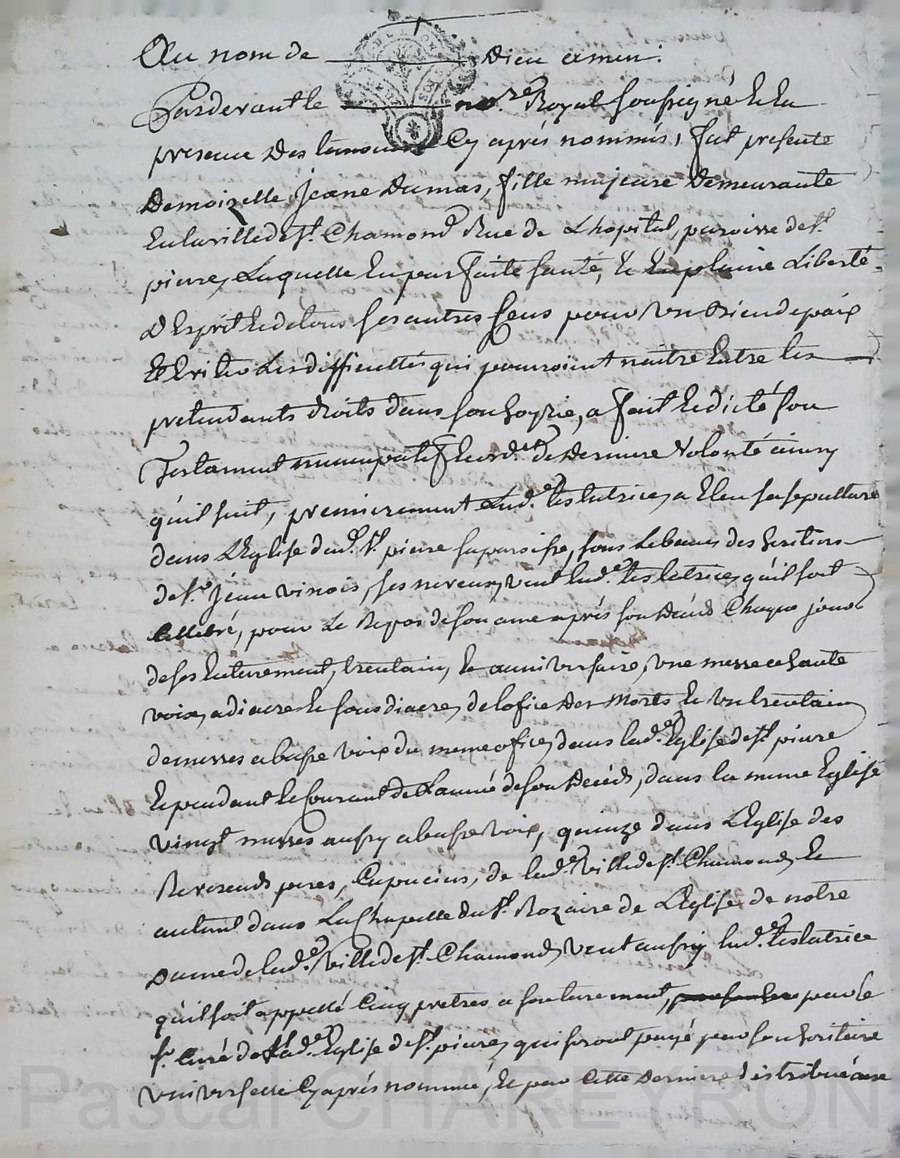 Au nom de Dieu amen.
Pardevant le no.re Royal soussigné & en
presence des temoins Cy aprés nommés, fut presente
Demoizelle Jeane Dumas, fille majeure Demeurante
En la ville de St. Chamond Rue de Lhopital, paroisse de St.
pierre, Laquelle En parfaite santé, & En plaine Liberté
d'Esprit & de tous ses autres sens pour Entretien de paix
Et Eviter Les difficultés qui pourroient naitre Entre les
pretendants droits dans son hoyrie, a fait & dicté son
Testament nuncupatif & ord.e de Derniere Volonté ainsy
qu'il suit, premierement Lad.e testatrice, a Eleu sa sepulture
dans L'Eglise dud. St. pierre sa paroisse, sous Le banc des heritiers
de sr. Jean vinois, ses neveux, veut lad.e testatrice, qu'il soit
Cellebré, pour Le Repos de son ame aprés son Décés Chaque jour
de ses Enterrement, trentain, & anniversaire, une messe a haute
voix, a diacre & sous diacre, de lofice Des Morts & un trentain
de messes a basse voix du meme ofice, dans lad.e Eglise de St. pierre
& pendant le Courant de L'année de son Décéds, dans la meme Eglise
vingt messes aussy a basse voix, quinze dans L'Eglise des
Reverends peres, Capucins, de lad.e ville de St. Chamond, &
autant dans La Chapelle du St. Rozaire de L'Eglise de notre
Dame de lad.e ville de St. Chamond, veut aussy lad.e testatrice
qu'il soit appellé Cinq pretres a son Enterrement, par le
sr. Curé de lad.e Eglise de St. pierre, qui seront payé par son heritiere
universelle Cy aprés nommée, & par Cette Derniere distribué aux
Pascal CHAREYRON